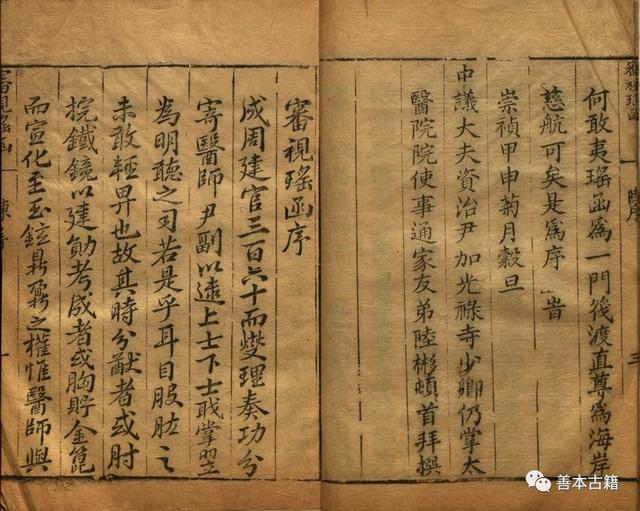 何敢夷瑤函為一門筏渡直尊為海岸
慈航可矣是為序旹
崇禎甲申菊月穀旦
中議大夫資治尹加光祿寺少卿仍掌太
醫院院使事通家友弟陸彬頓首拜撰
陸序
三
審視瑤函序
成周建官三百六十而燮理奏功分
寄醫師尹副以逮上士下士職掌翌
為明聽之司若是乎耳目股肱之
未敢輕畀也故其時分猷者或肘
捥鐵鏡以建勛考成者或胸貯金箆
而宣化至玉鉉鼎鼐之權惟醫師與
審視瑤函
陳序
一
善本古籍